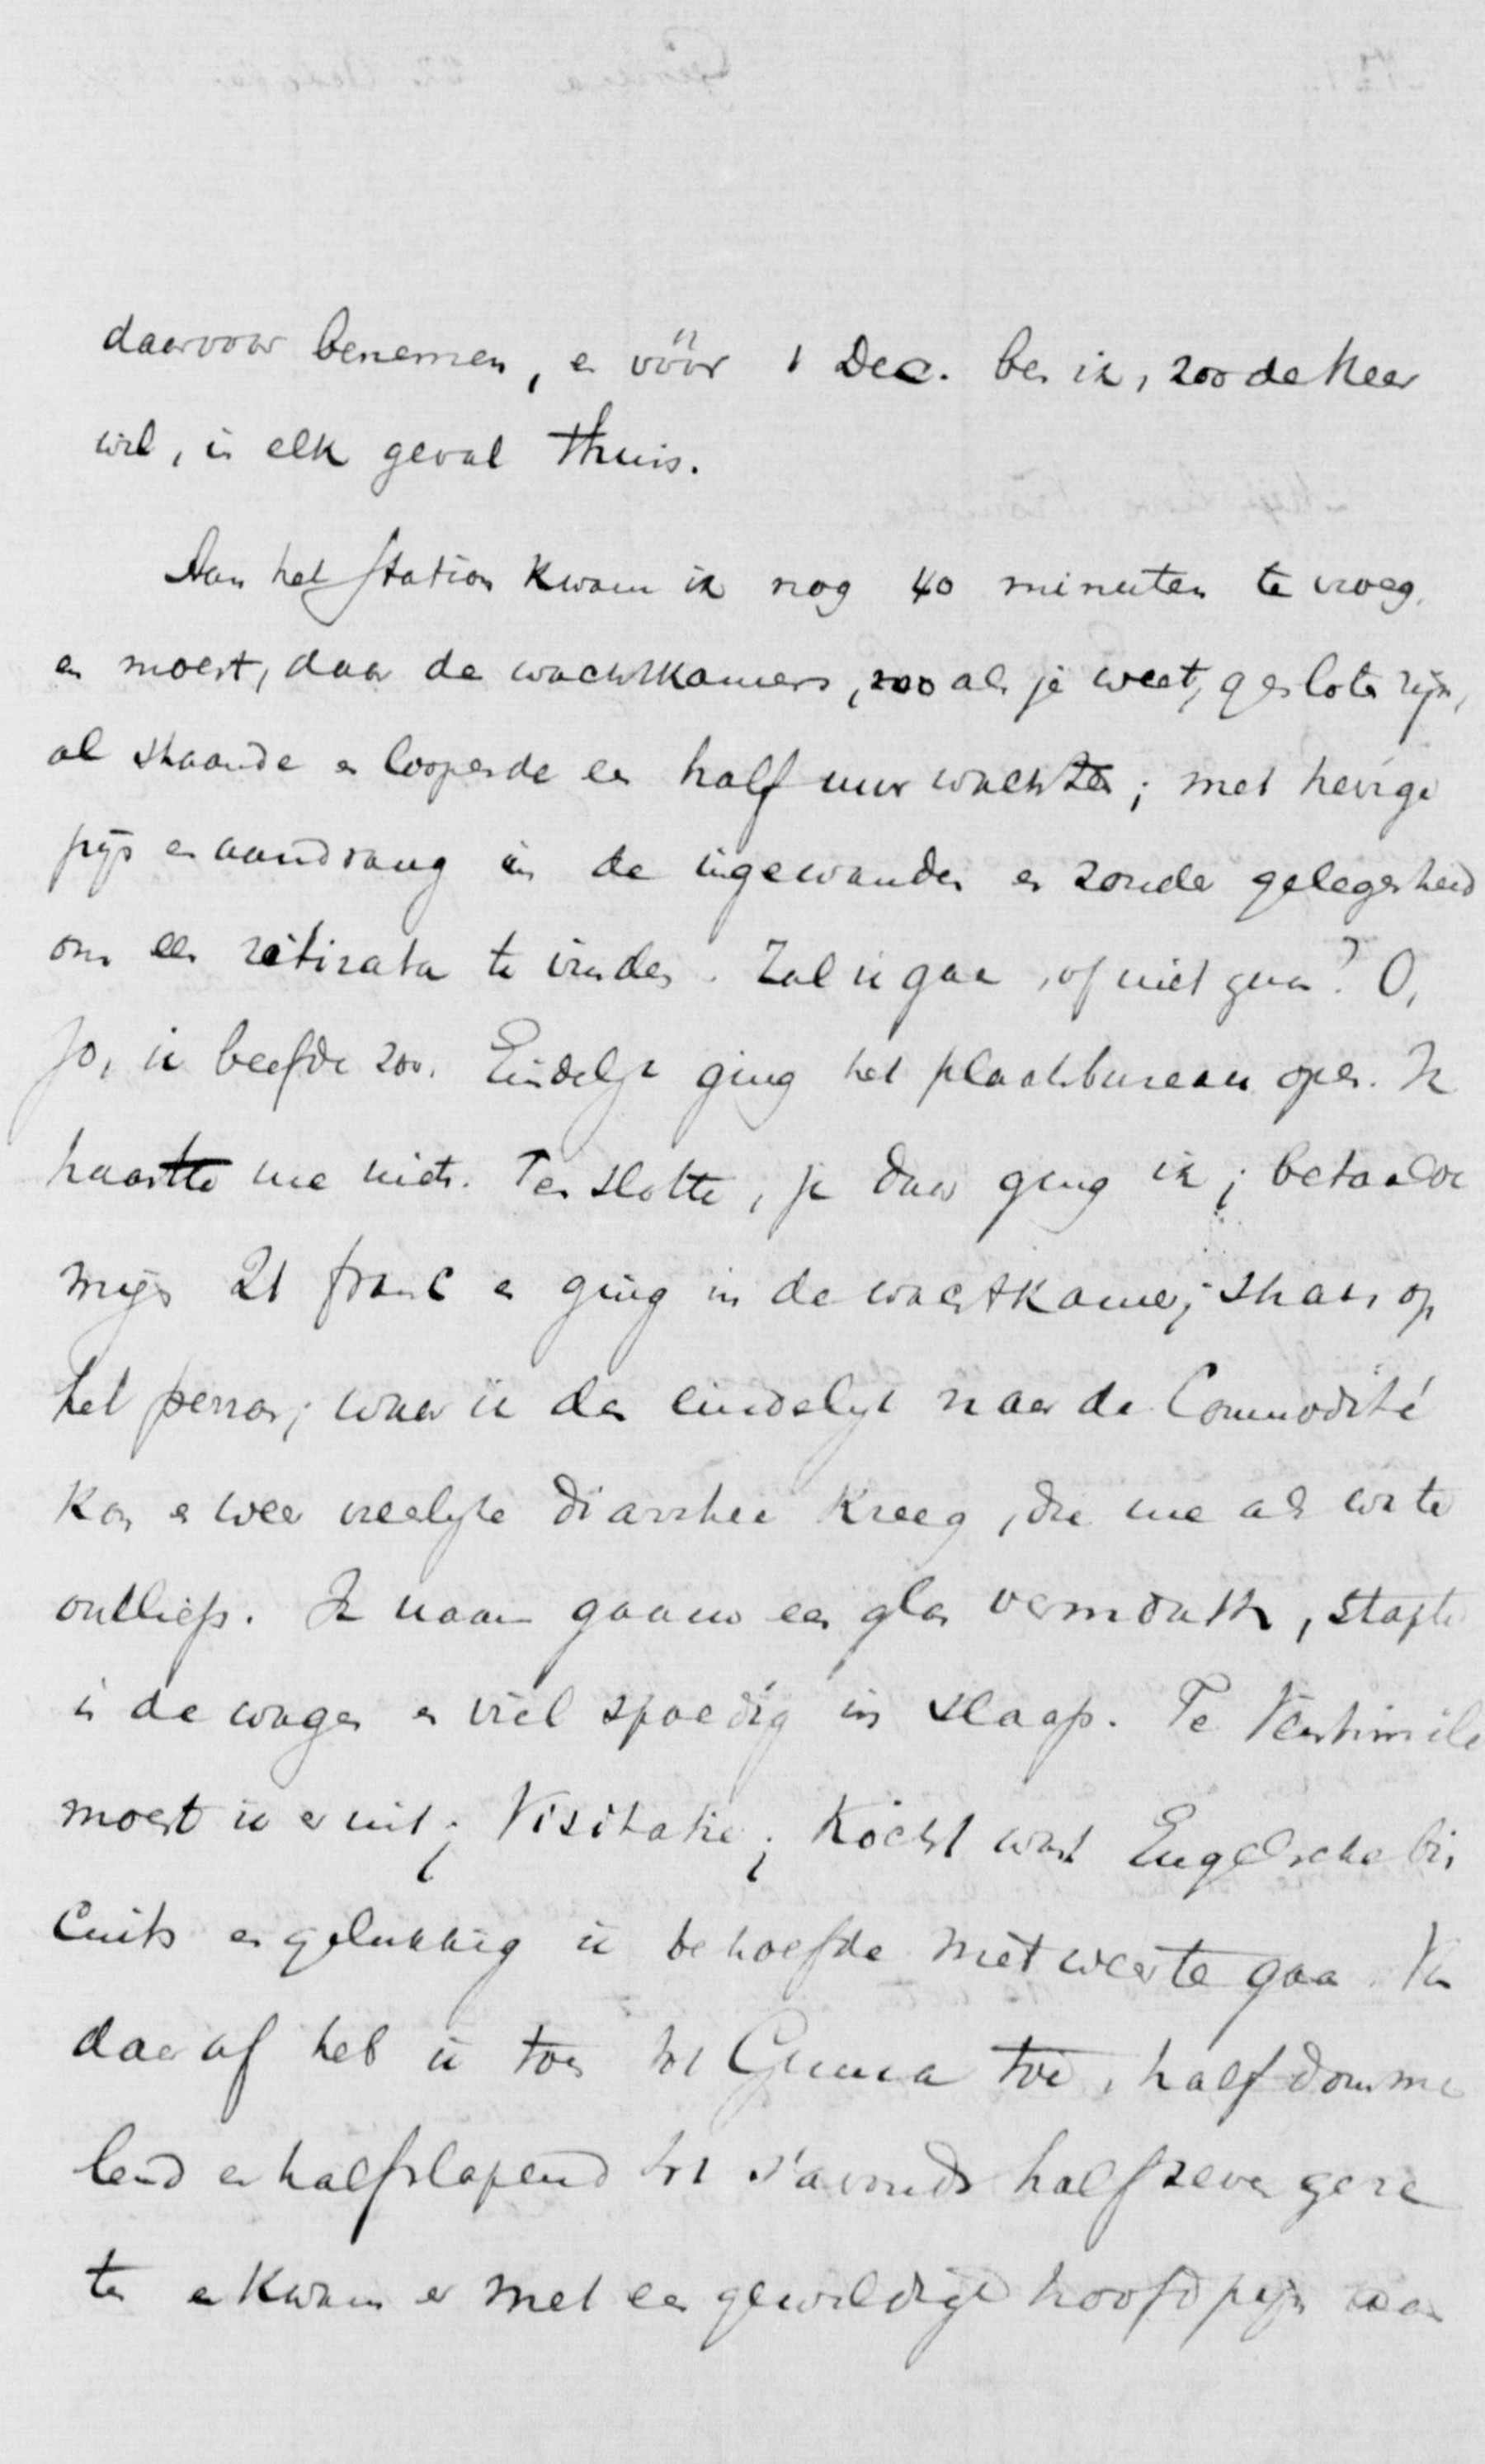 daarvoor benemen, en vóór 1 Dec. ben ik, zoo de Heer
wil, in elk geval thuis.
Aan het station kwam ik nog 40 minuten te vroeg
en moest, daar de wachtkamers, zooals je weet, gesloten zijn,
al staande en loopende een half uur wachten; met hevige
pijn en aandrang in de ingewanden en zonder gelegenheid
om een retirata te vinden. Zal ik gaan, of niet gaan? O,
Jo, ik beefde zoo. Eindelijk ging het plaatsbureau open. Ik
haastte me niets. Ten slotte, ja daar ging ik; betaalde
mijn 21 franc en ging in de wachtkamer; thans op
het perron; waar ik dan eindelijk naar de Commodité
kon en weer vreeslijke diarrhee kreeg, die me als water
ontliep. Ik nam gauw een glas vermouth, stapte
in de wagen en viel spoedig in slaap. Te Ventimile
moest ik er uit; Visitatie; Kocht wat Engelsche bis
cuits en gelukkig ik behoefde niet weer te gaan. Van
daar af heb ik toen tot Genua toe, half domme
lend en halfslapend tot s'avonds half zeven geze
ten en kwam er met een geweldige hoofdpijn aan